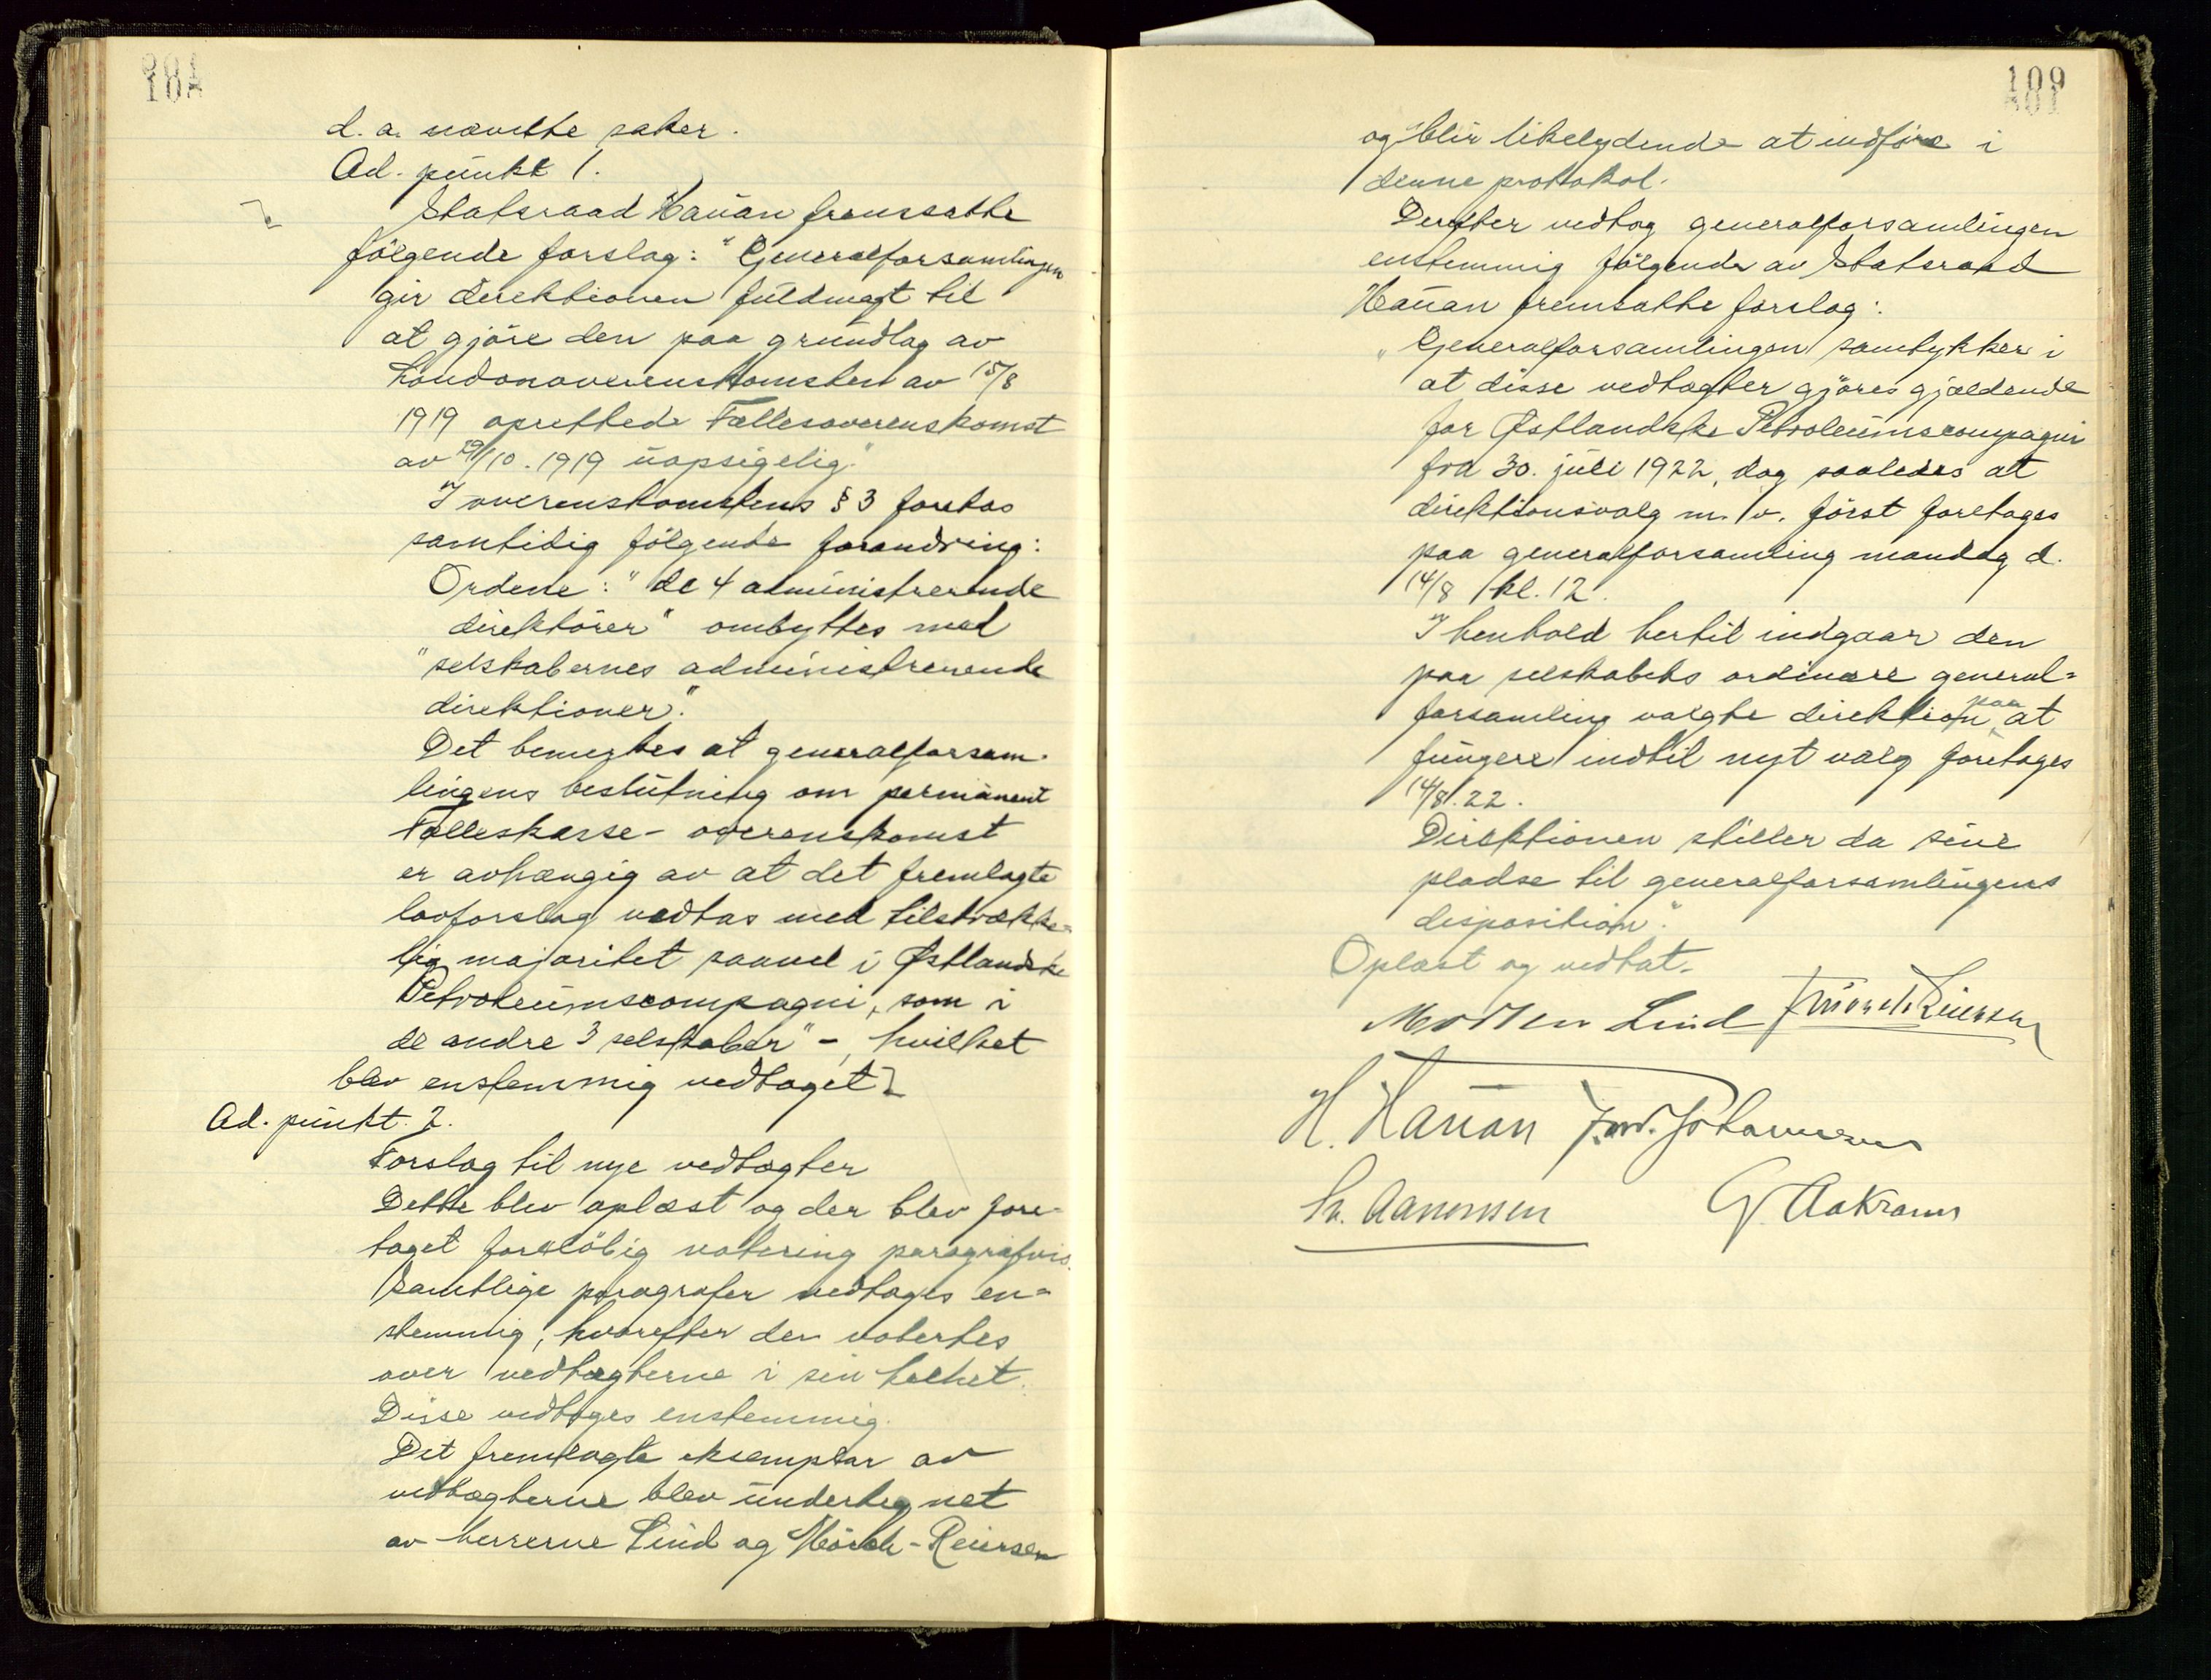 108
d. a. nævnte saker.
Ad. punkt 1.
Statsraad Hauan fremsatte
følgende forslag: "Generalforsamlingen
gir direktionen fuldmagt til
at gjøre den paa grundlag av
Londonoverenskomsten av 15/8
1919 oprettede Fællesoverenskomst
av 29/10. 1919 uopsigelig."
I overenskomstens § 3 foretas
samtidig følgende forandring:
Ordene: "de 4 administrerende
direktører" ombyttes med
"selskabernes administrerende
direktioner".
Det bemerkes at generalforsam-
lingens beslutning om permanent
Fælleskasse- overenskomst
er avhængig av at det fremlagte
lovforslag vedtas med tilstrække-
lig majoritet saavel i Østlandske
Petroleumscompagni, som i
de andre 3 selskaber" -, hvilket
blev enstemmig vedtaget
Ad. punkt. 2.
Forslag til nye vedtægter
Dette blev oplæst og der blev fore-
taget foreløbig votering paragrafvis.
Samtlige paragrafer vedtages en-
stemmig, hvorefter der votertes
over vedtægterne i sin helhet.
Disse vedtoges enstemmig.
Det fremlagte eksemplar av
vedtægterne blev undertegnet
av herrerne Lind og Mörch-Reiersen
109
og blir likelydende at indføre i
denne protokol.
Derefter vedtog generalforsamlingen
enstemmig følgende av Statsraad
Hauan fremsatte forslag:
"Generalforsamlingen samtykker i
at disse vedtægter gjøres gjældende
for Østlandske Petroleumscompagni
fra 30. juli 1922, dog saaledes at
direktionsvalg m. v. først foretages
paa generalforsamling mandag d.
14/8 kl. 12.
I henhold hertil indgaar den
paa selskabets ordinære general-
forsamling valgte direktion paa at
fungere indtil nyt valg foretages
14/8. 22.
Direktionen stiller da sine
pladse til generalforsamlingens
disposition".
Oplæst og vedtat.
Morten Lind Mörch Reiersen
H. Hauan Fred. Johannesen
Aanonsen G. Aakrann